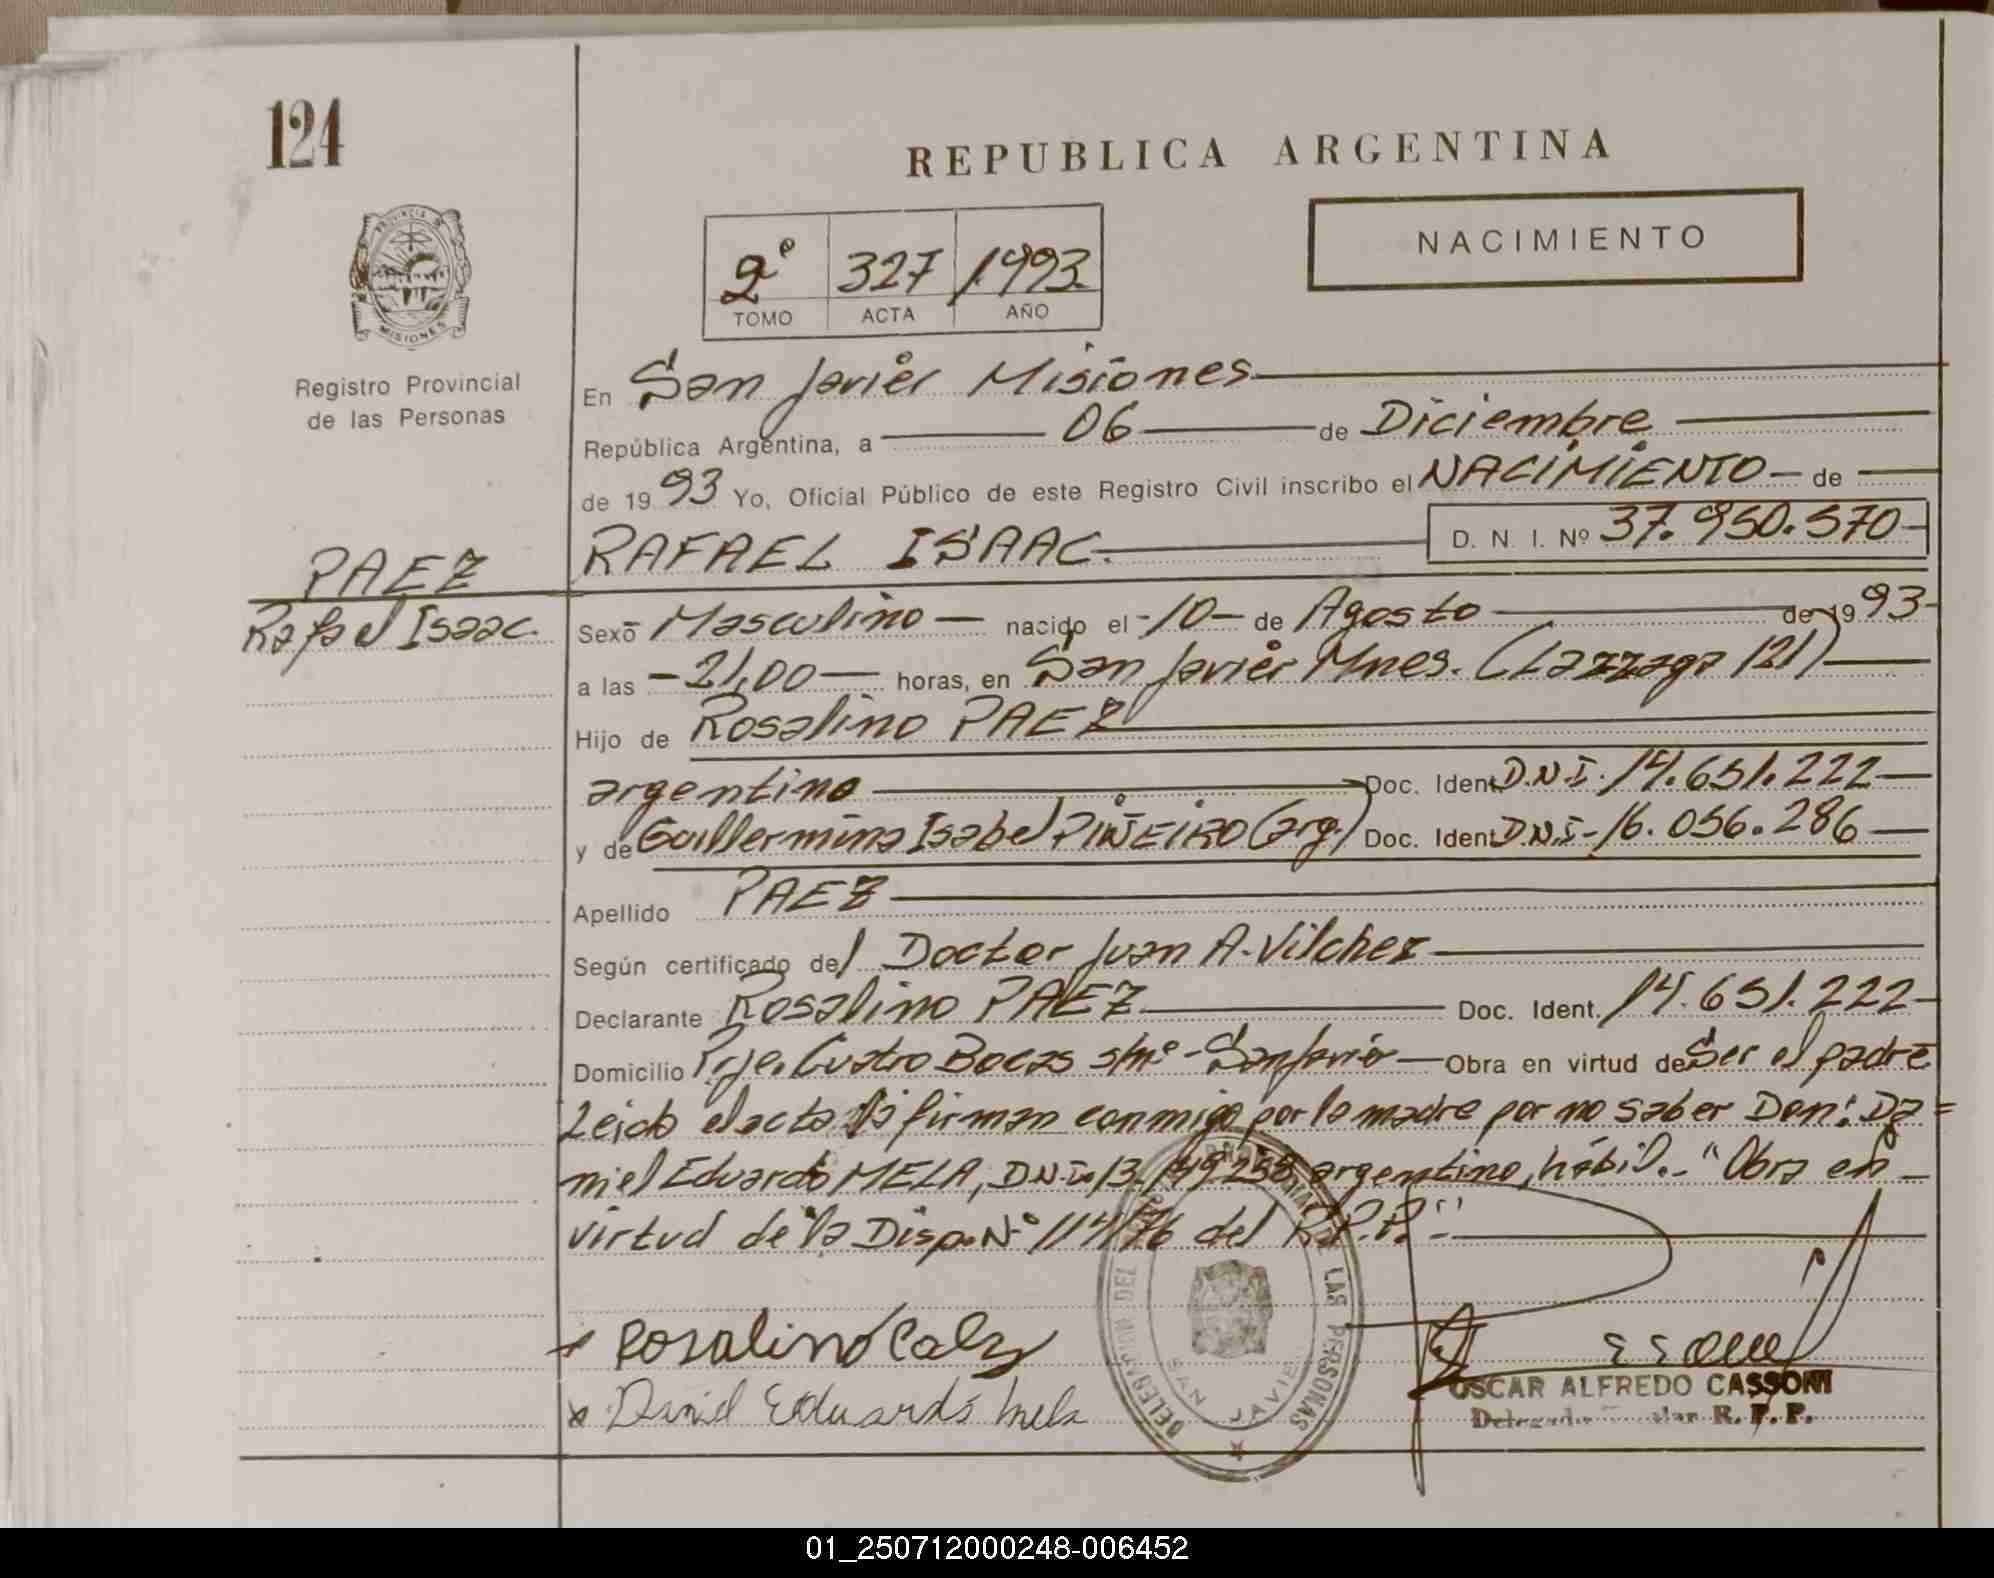 124
REPUBLICA ARGENTINA
NACIMIENTO
2º 327 1.993
TOMO ACTA AÑO
PROVINCIA DE
MISIONES
Registro Provincial
de las Personas
En San Javier Misiones
República Argentina, a 06 de Diciembre
de 1993 Yo, Oficial Público de este Registro Civil inscribo el NACIMIENTO - de
RAFAEL ISAAC. D. N. I. Nº 37.950.570-
PAEZ
Rafael Isaac.
Sexo Masculino - nacido el -10- de Agosto de 1993-
a las -21,00- horas, en San Javier Mnes. (Lazzaga 121)
Hijo de Rosalino PAEZ
argentino Doc. Ident. D.N.I. 14.651.222-
y de Guillermina Isabel PIÑEIRO (arg.) Doc. Ident. D.N.I- 16.056.286-
Apellido PAEZ
Según certificado del Doctor Juan A. Vilchez
Declarante Rosalino PAEZ Doc. Ident. 14.651.222-
Domicilio Pje. Cuatro Bocas s/nº - San Javier - Obra en virtud de Ser el padre
Leido el acta la firman conmigo por la madre por no saber Don: Da=
niel Eduardo MELA, D.N.I. 13. argentino, hábil.- "Obra en
virtud de la Disp. Nº 114/76 del R.P.P."-
Rosalino
Daniel Eduardo Mela
DELEGACION DEL LAS PERSONAS
SAN JAVIER
OSCAR ALFREDO CASSONI
R. P. P.
01_250712000248-006452